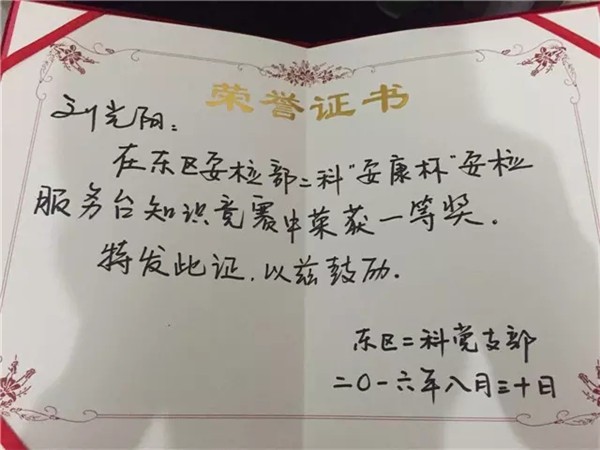 荣誉证书
刘光阳：
在东区安检部二科"安康杯"安检
服务台知识竞赛中荣获一等奖。
特发此证，以兹鼓励。
东区二科党支部
二〇一六年八月三十日